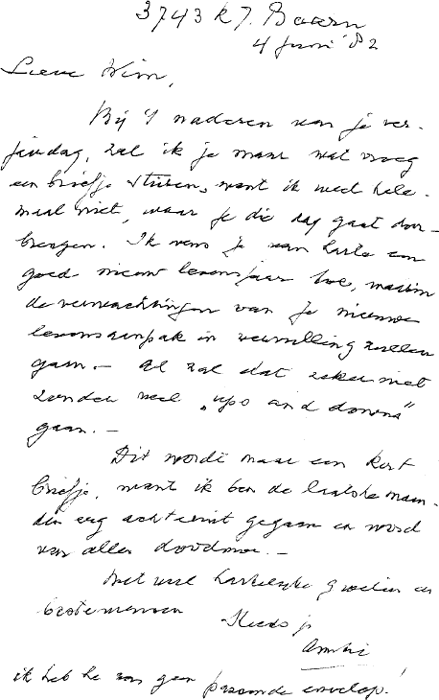 3743 KJ. Baarn
4 juni '82
Lieve Wim,
Bij 't naderen van je ver-
jaardag, zal ik je maar wat vroeg
een briefje sturen, want ik weet hele-
maal niet, waar je die dag gaat door-
brengen. Ik wens je van harte een
goed nieuw levensjaar toe, waarin
de verwachtingen van je nieuwe
levensaanpak in vervulling zullen
gaan. — Al zal dat zeker niet
zonder veel „ups and downs"
gaan. —
Dit wordt maar een kort
briefje, want ik ben de laatste maan-
den erg achteruit gegaan en word
van alles doodmoe. —
Met veel hartelijke groeten en
beste wensen
Steeds je
ik heb geen passende envelop!